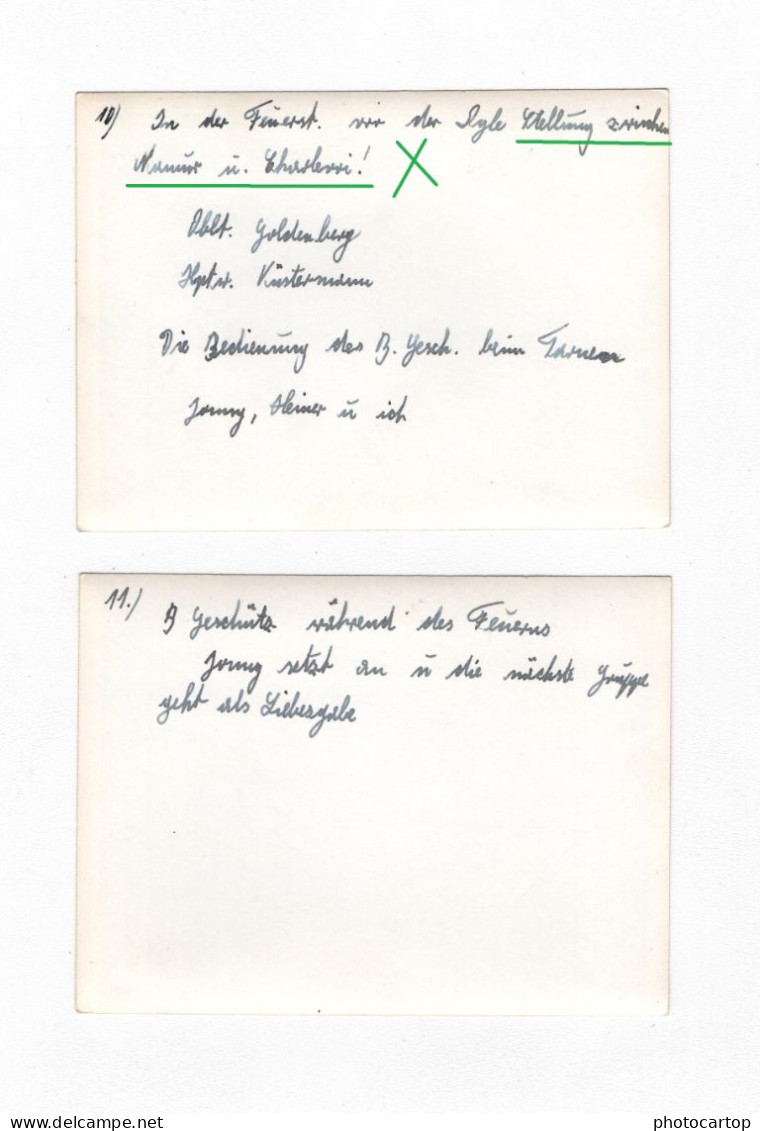 10) In der Feuerst. vor der Dyle Stellung zwischen
Namur u. Charleroi!
Oblt. Goldenberg
Hptw. Küstermann
Die Bedienung des B. Gesch. beim Tarnen
Jonny, Steiner u ich
11.) B Geschütz während des Feuerns
Jonny setzt an u die nächste Gruppe
geht als Liebesgabe
delcampe.net
photocartop